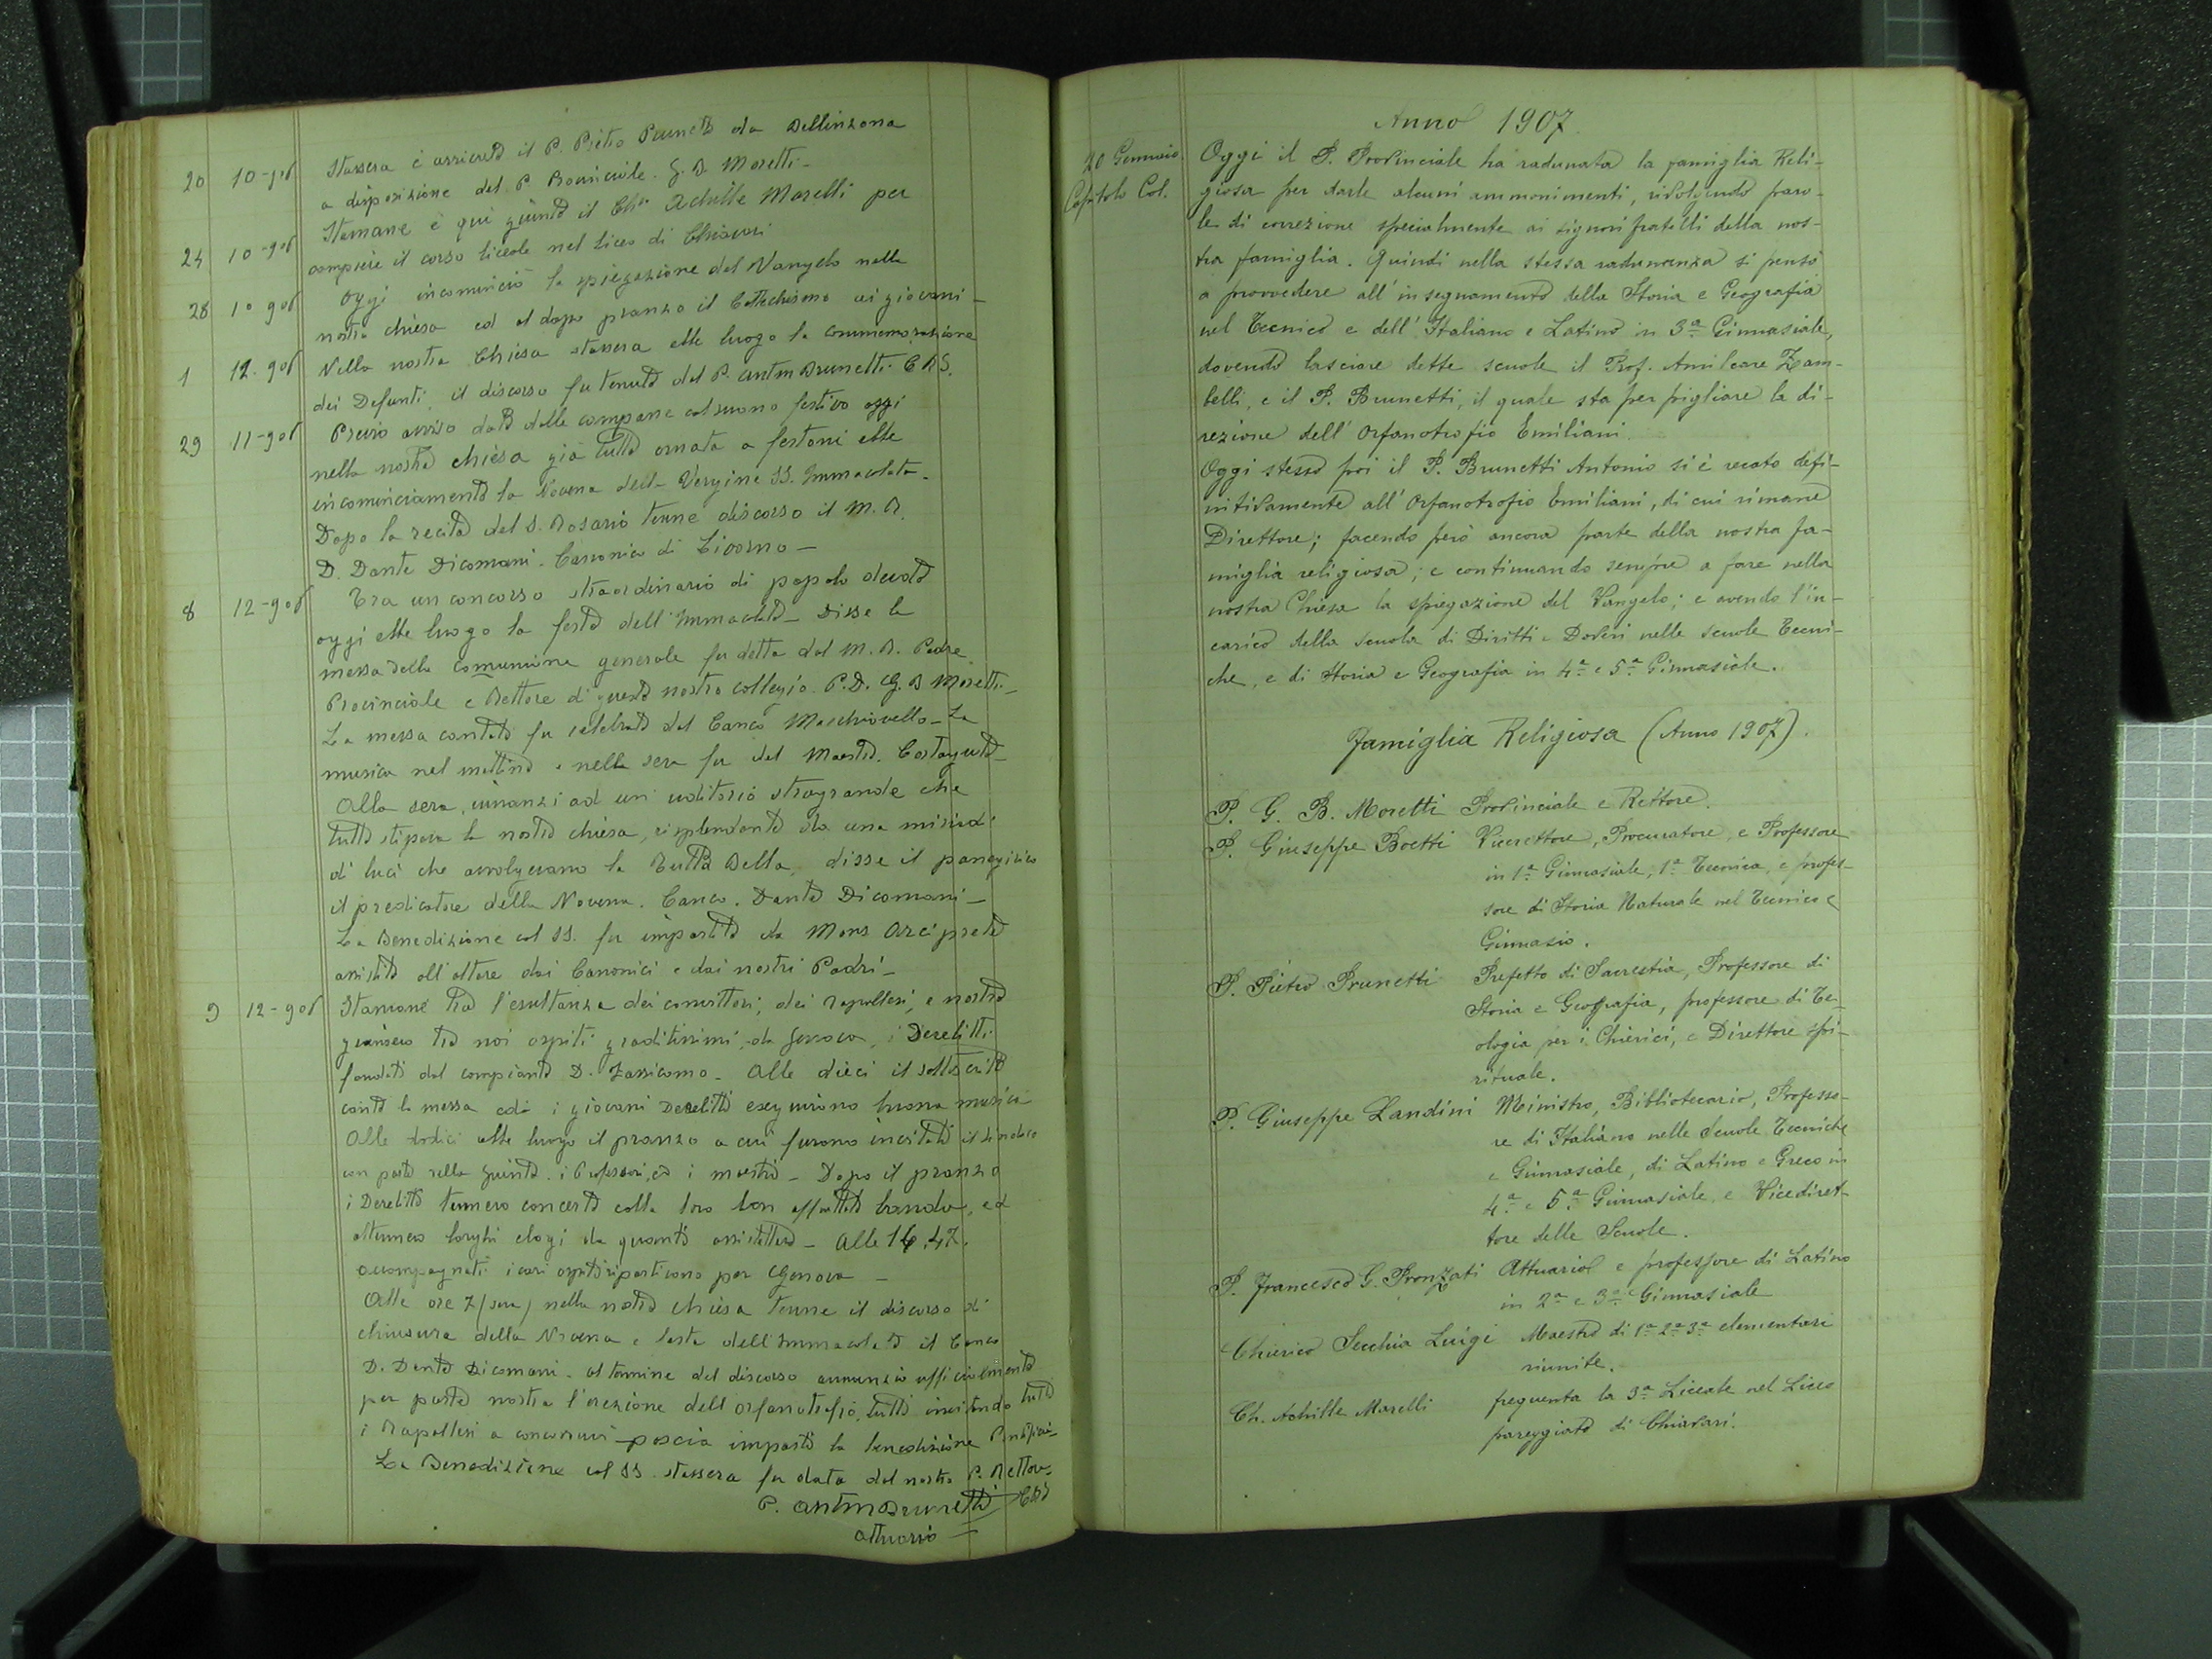 Stassera è arrivato il P. Pietro Prunetti da Bellinzona
20 10-906 a disposizione del P. Provinciale. G. B. Moretti-
Stamane è qui giunto il Ch.co Achille Marelli per
24 10-906 compiere il corso liceale nel liceo di Chiavari
Oggi incominciò la spiegazione del Vangelo nella
28 10 906 nostra chiesa ed al dopo pranzo il Catechismo ai giovani-
Nella nostra Chiesa stassera ebbe luogo la commemorazione
1 12. 906 dei Defunti. il discorso fu tenuto dal P. Antm Brunetti. CRS.
Previo avviso dato dalle campane col suono festivo oggi
29 11-906 nella nostra chiesa già tutta ornata a festoni ebbe
incominciamento la Novena della Vergine SS. Immacolata-
Dopo la recita del S. Rosario tenne discorso il M. R.
D. Dante Dicomani. Canonico di Livorno-
Tra un concorso straordinario di popolo devoto
8 12-906 oggi ebbe luogo la festa dell'Immacolata- Disse la
messa della comunione generale fu detta dal M. R. Padre
Provinciale e Rettore di questo nostro collegio P. D. G. B Moretti-
La messa cantata fu celebrata dal Canco Macchiavello- La
musica nel mattino e nella sera fu del Maestro. Costaguta-
Alla sera, innanzi ad un uditorio stragrande che
tutta stipava la nostra chiesa, risplendente da una miriade
di luci che avvolgevano la Tutta Bella, disse il panegirico
il predicatore della Novena. Canco. Dante Dicomani-
La Benedizione col SS. fu impartita da Mons Arciprete
assistito all'altare dai Canonici e dai nostri Padri-
9 12-906 Stamane tra l'esultanza dei convittori, dei rapallesi, e nostra
giunsero tra noi ospiti graditissimi, da Genova, i Derelitti
fondati dal compianto D. Zanicomo- Alle dieci il sottoscritto
cantò la messa ed i giovani Derelitti eseguirono buona musica
Alle dodici ebbe luogo il pranzo a cui furono invitati il Sindaco
con parte della Giunta. i Professori, ed i maestri- Dopo il pranzo
i Derelitti tennero concerto colla loro ben affiatata banda, ed
ottennero larghi elogi da quanti assistettero- Alle 16,47.
accompagnati i cari ospiti ripartirono per Genova-
Alle ore 7 (sera) nella nostra chiesa tenne il discorso di
chiusura della Novena e festa dell'Immacolata il Canco
D. Dante Dicomani. al termine del discorso annunziò ufficialmente
per parte nostra l'erezione dell'orfanotrofio, tutti invitando tutti
i Rapallesi a concorrervi-poscia impartì la benedizione Pontificia-
La Benedizione col SS. stassera fu data dal nostro P. Rettore-
P. Antm Brunetti CRS
attuario

Anno 1907.
20 Gennaio. Oggi il P. Provinciale ha radunata la famiglia Reli-
Capitolo Col. giosa per darle alcuni ammonimenti, rivolgendo paro-
le di correzione specialmente ai signori fratelli della nos-
tra famiglia. Quindi nella stessa radunanza si pensò
a provvedere all'insegnamento della Storia e Geografia
nel Tecnico e dell'Italiano e Latino in 3ª Ginnasiale,
dovendo lasciare dette scuole il Prof. Amilcare Zam-
belli, e il P. Brunetti, il quale sta per pigliare la di-
rezione dell'Orfanotrofio Emiliani.
Oggi stesso poi il P. Brunetti Antonio si è recato defi-
nitivamente all'Orfanotrofio Emiliani, di cui rimane
Direttore; facendo però ancora parte della nostra fa-
miglia religiosa; e continuando sempre a fare nella
nostra Chiesa la spiegazione del Vangelo; e avendo l'in-
carico della scuola di Diritti e Doveri nelle scuole Tecni-
che, e di Storia e Geografia in 4ª e 5ª Ginnasiale.
Famiglia Religiosa (Anno 1907).
P. G. B. Moretti Provinciale e Rettore.
P. Giuseppe Boetti Vicerettore, Procuratore, e Professore
in 1ª Ginnasiale, 1ª Tecnica, e profes-
sore di Storia Naturale nel Tecnico e
Ginnasio.
P. Pietro Prunetti Prefetto di Sacrestia, Professore di
Storia e Geografia, professore di Te-
ologia per i Chierici, e Direttore spi-
rituale.
P. Giuseppe Landini Ministro, Bibliotecario, Professo-
re di Italiano nelle Scuole Tecniche
e Ginnasiale, di Latino e Greco in
4ª e 5ª Ginnasiale, e Vicediret-
tore delle Scuole.
P. Francesco G. Pronzati Attuario e professore di Latino
in 2ª e 3ª Ginnasiale
Chierico Secchia Luigi Maestro di 1ª 2ª 3ª elementari
riunite.
Ch. Achille Marelli frequenta la 3ª Liceale nel Liceo
pareggiato di Chiavari.